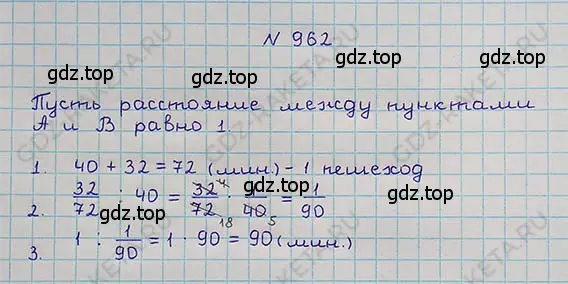 N 962
gdz.top gdz.top gdz.top
Пусть расстояние между пунктами
А и В равно 1.
gdz.top gdz.top
1. 40 + 32 = 72 (мин.) - 1 пешеход
2. 32/72 : 40 = 32/72 · 1/40 = 1/90
4 18 5
gdz.top gdz.top gdz.top
3. 1 : 1/90 = 1 · 90 = 90 (мин.)
gdz.top gdz.top
GDZ-RAKETA.RU